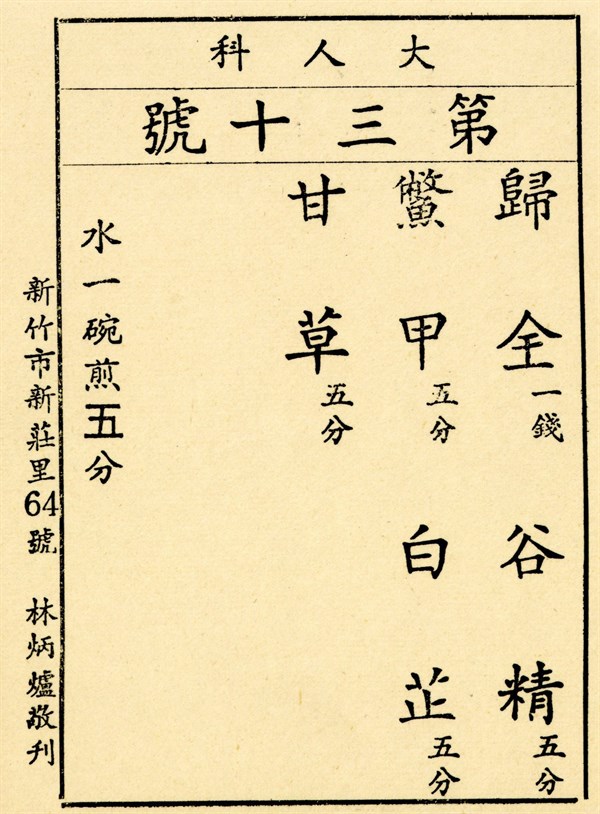 大人科
第三十號
歸全一錢 谷精五分
鱉甲五分 白芷五分
甘草五分
水一碗煎五分
新竹市新莊里64號 林炳爐敬刊